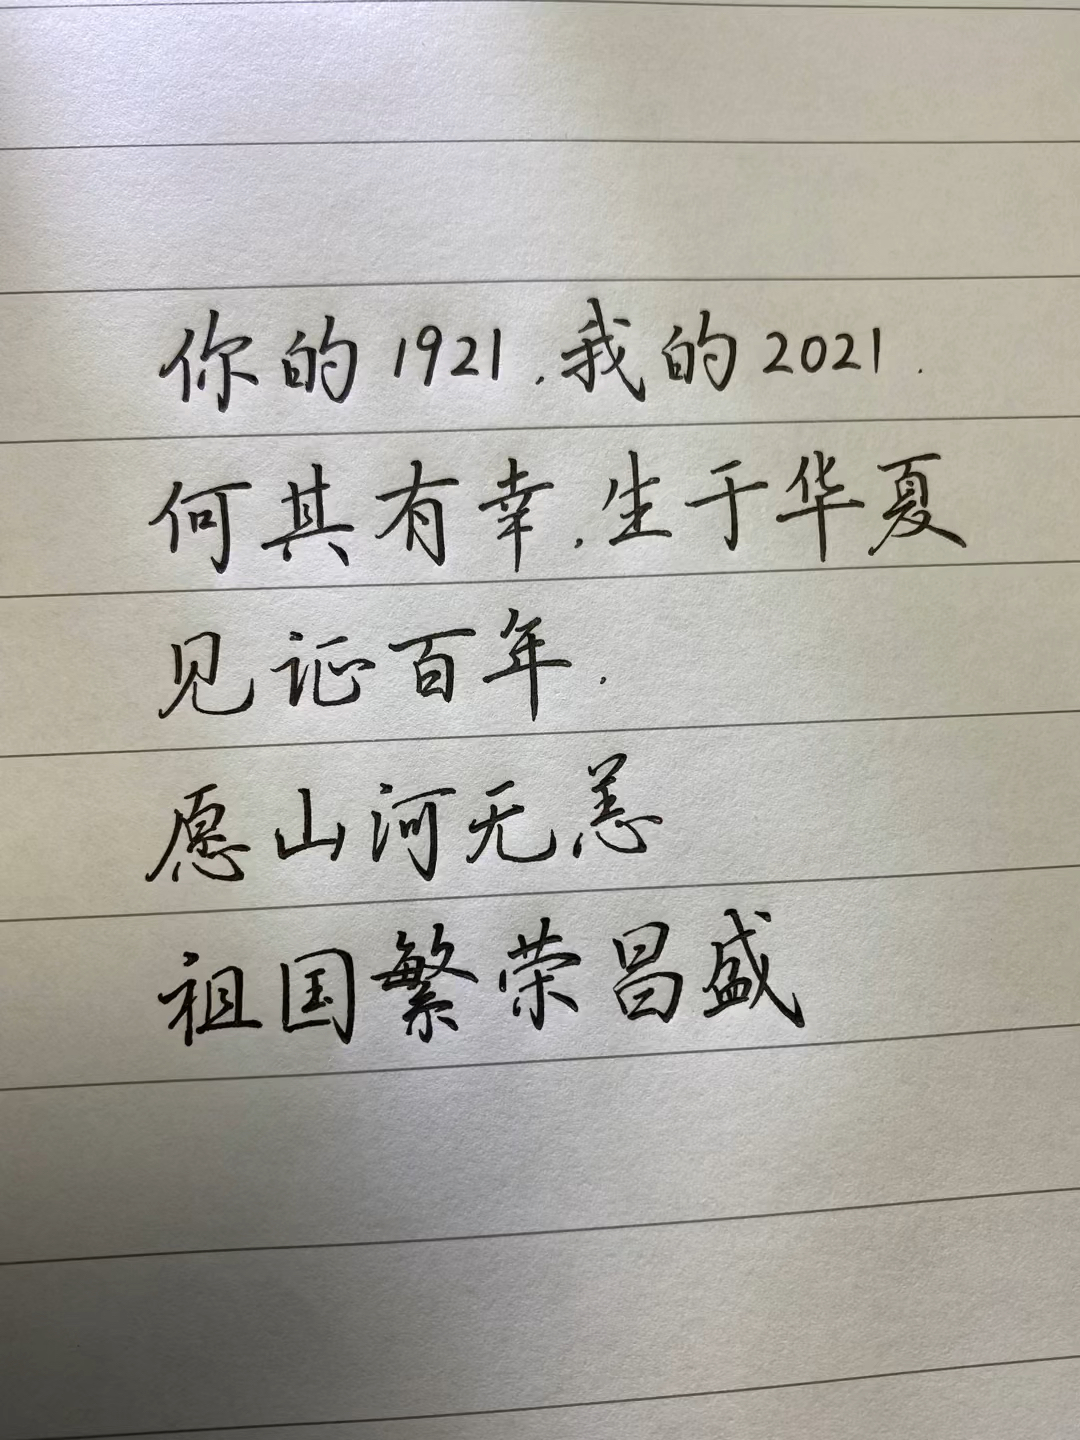 你的1921,我的2021.
何其有幸,生于华夏
见证百年.
愿山河无恙
祖国繁荣昌盛